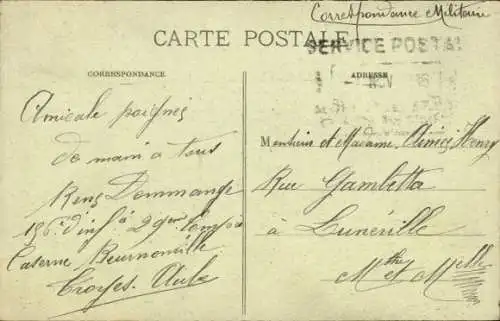 Correspondance Militaire
CARTE POSTALE
SERVICE POSTAL
CORRESPONDANCE
ADRESSE
Amicale poignée
de main à tous
René Demmange
156e d'inf à 29e Compie
Caserne Beurnonville
Troyes. Aube
Monsieur et Madame Aimée Henry
Rue Gambetta
à Lunéville
Mthe et Mlle